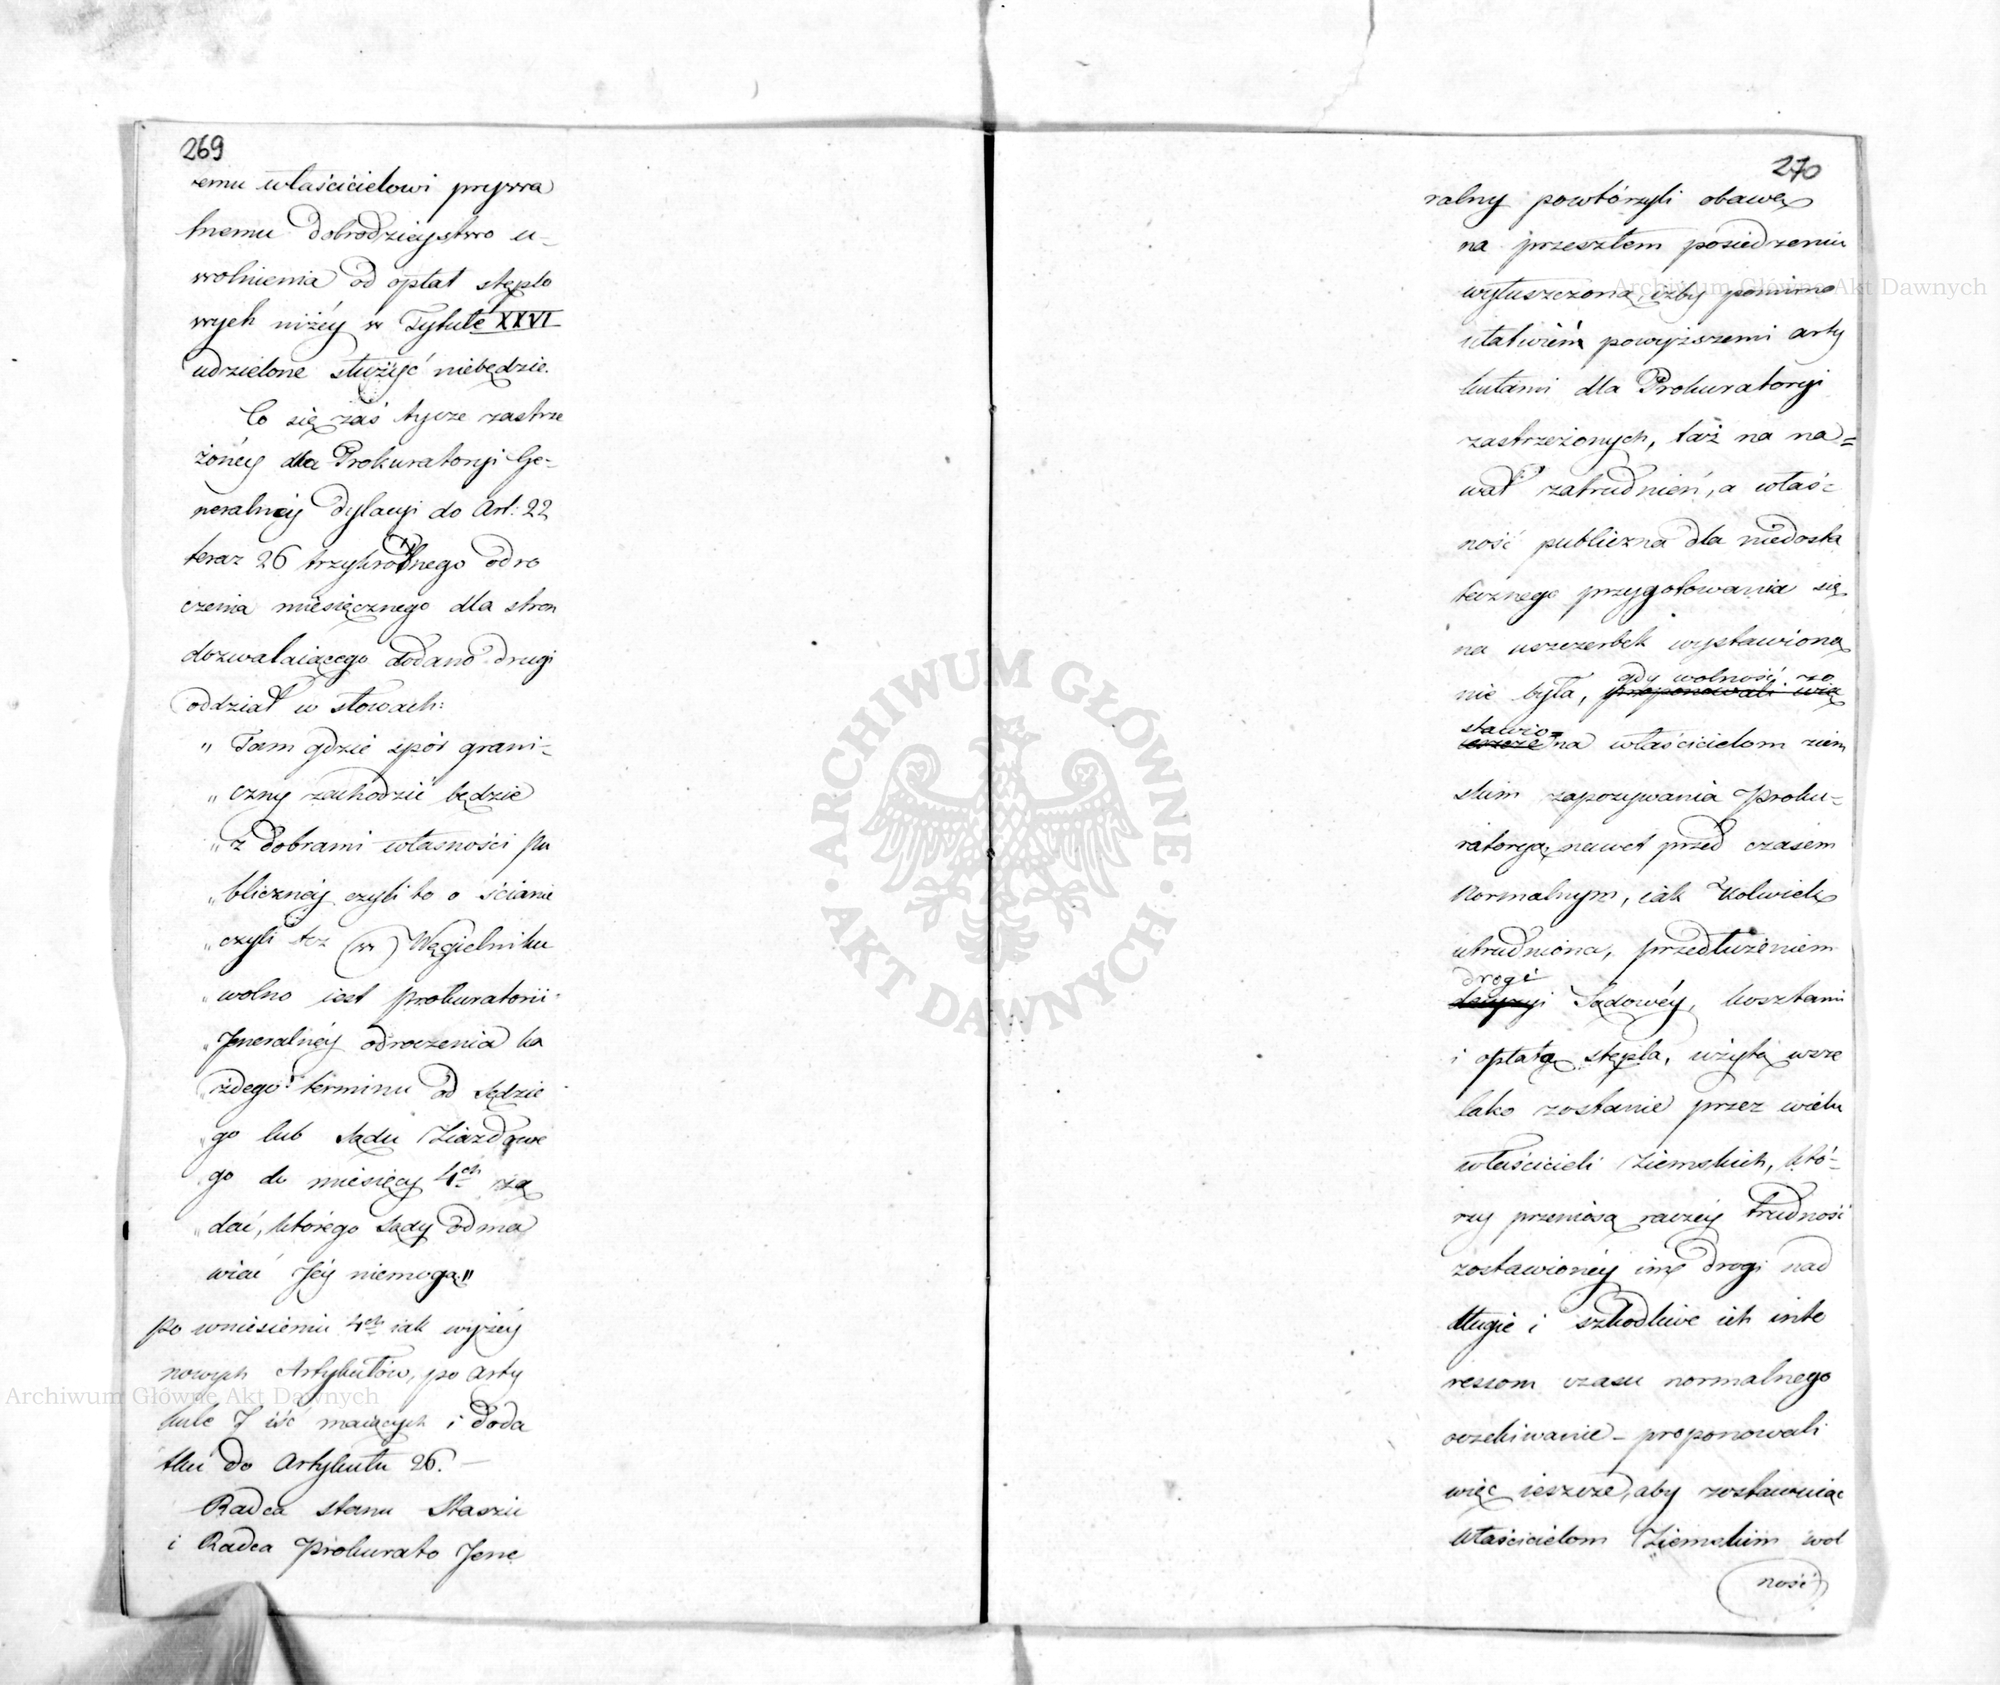 269
remu właścicielowi prywa
tnemu dobrodzieystwo u-
wolnienia od opłat stęplo
wych niżéy w Tytule XXVI
udzielone służyć niebędzie.
Co się zaś tycze zastrze
żonéy dla Prokuratoryi Ge-
neralnéy dylacyi do Art: 22
teraz 26 trzykrotnego odro
czenia miesięcznego dla stron
dozwalaiącego dodano drugi
oddział w słowach:
" Tam gdzie spór grani-
" czny zachodzić będzie
" z dobrami własności pu
" blicznéy czyli to o ścianie
" czyli też (w) Węgielniku
" wolno iest prokuratorii
" Jeneralnéy odroczenia ka
" żdego terminu od Sędzie
" go lub Sądu Ziazdowe
go do miesięcy 4ch żą
" dać, którego Sądy odma
wiać Jéy niemogą"
po wniesieniu 4ch iak wyżéy
nowych Artykułów, po arty
kule 7 iść maiących i doda
tku do Artykułu 26. —
Radca stanu Staszic
i Radca Prokurator Jene
270
ralny powtórzyli obawę
na przeszłem posiedzeniu
wyłuszczoną, iżby pomimo
ułatwień powyższemi arty
kułami dla Prokuratoryi
zastrzeżonych, taż na na=
wał zatrudnień, a włas-
ność publiczna dla niedosta
tecznego przygotowania się
na uszczerbek wystawioną
nie była, gdy wolność zo
proponowali wię
stawio=
ieszcze na właścicielom ziem
skim zapozywania Proku-
ratoryą nawet przed czasem
Normalnym, iak kolwiek
utrudniona, przedłużeniem
drogi
decyzyi Sądowéy, kosztami
i opłatą stępla, użytą wsze
lako zostanie przez wielu
właścicieli Ziemskich, któ-
rzy przeniosą raczéy trudność
zostawionéy im drogi nad
długie i szkodliwe ich inte
ressom czasu normalnego
oczekiwanie - proponowali
więc ieszcze, aby zostawuiąc
właścicielom Ziemskim wol
ność
ARCHIWUM GŁÓWNE
AKT DAWNYCH
Archiwum Główne Akt Dawnych
Archiwum Główne Akt Dawnych